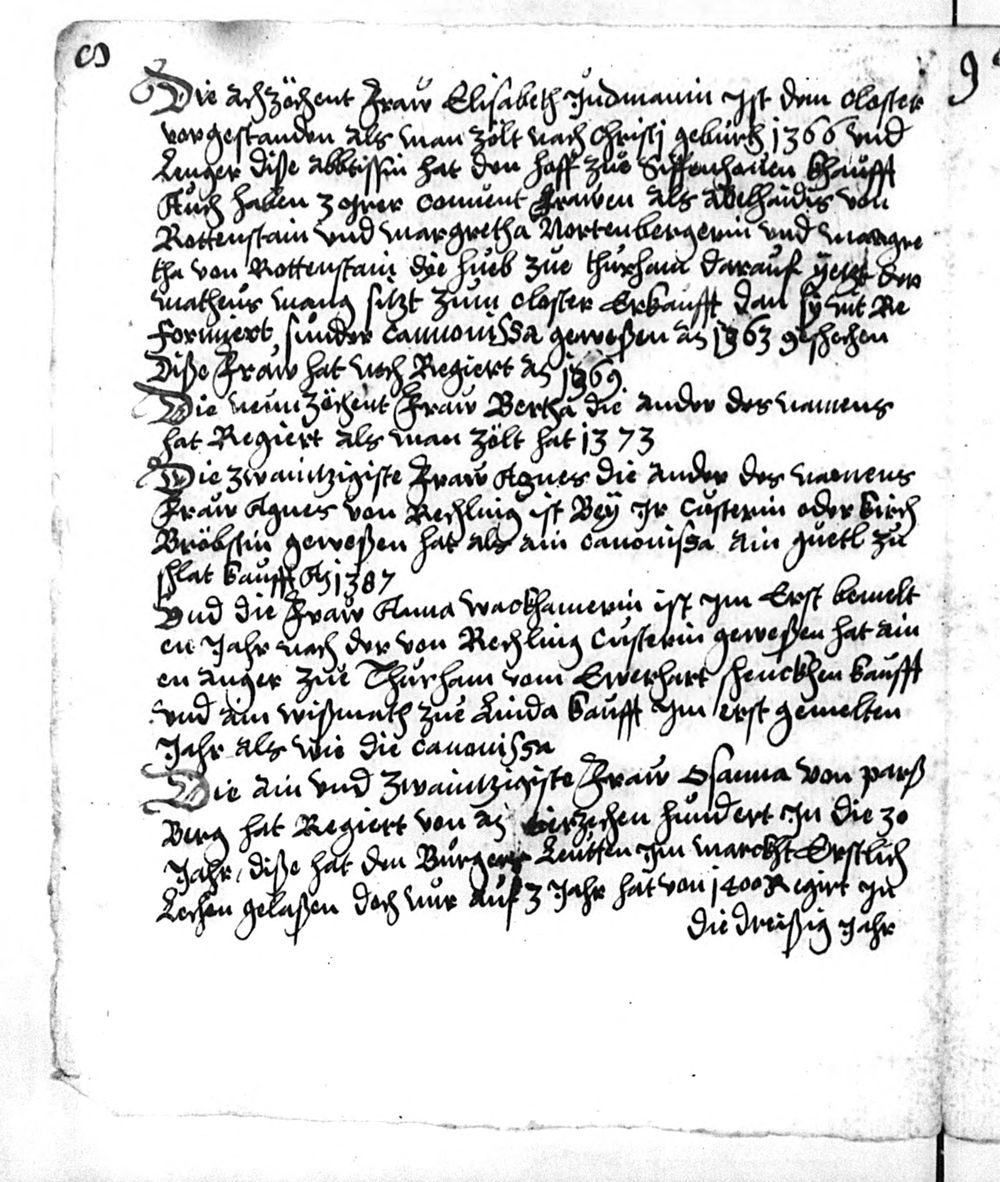 8
Die achzöhent Fraw Elisabeth Judmanin ist dem Closter
vorgestanden als man zölt nach Christj gebürth 1366 vnd
Lenger diße abbtissin hat den hoff zue Siffenhouen khaufft
Auch haben 3 ihrer Conuent Frawen als Adelhaidis von
Rottenstain vnd Margretha Nortenbergerin vnd Margre
tha von Rottenstain die hueb zue Thürham darauf yetzt der
Matheus Mang sitzt zum Closter Erkaufft dan sy nit Re
formiert sünder Cannonissa geweßen an 1363 geschehen
Diße Fraw hat noch Regiert an 1369
Die neünzöhent Fraw Bertha die ander des namens
hat Regiert als man zölt hat 1373
Die zwaintzigiste Fraw Agnes die ander des namens
Fraw Agnes von Rechling ist Bey Ir Custerin oder Kirch
Bröbstin geweßen hat als ain Canonissa ain guetl zu
shlat kaufft An 1387
Vnd die Fraw Anna Wackhamerin ist im Erst bemelt
en Jahr nach der von Rechling Custerin geweßen hat ain
en Anger zue Thürham vom Ewerhart shenckhen kaufft
vnd ain wißmath zue Linda kaufft im erst gemelten
Jahr als wie die Canonissa
Die ain vnd zwaintzigiste Fraw Osanna von parß
Berg hat Regiert von an vierzehen hundert in die 30
Jahr, diße hat den Bürgers Leütten im Marckht Erstlich
Lechen gelaßen doch nur auf 3 Jahr hat von 1400 Regirt in
die dreißig Jahr
9